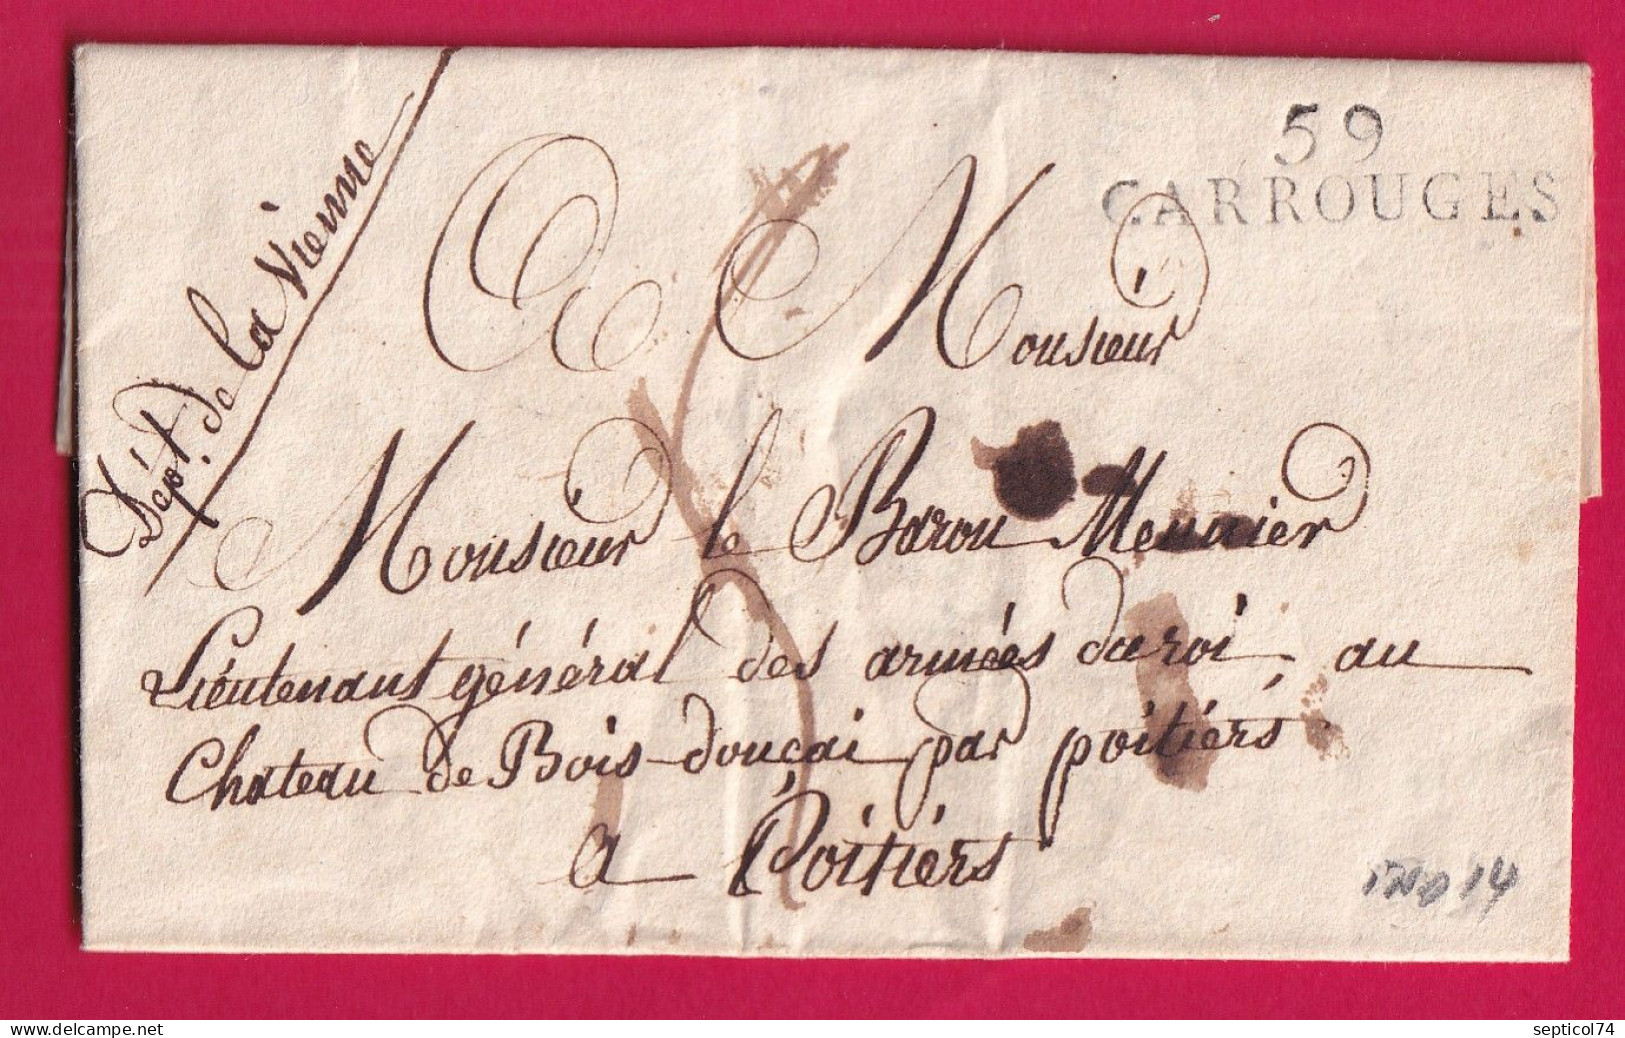 59
CARROUGES
Dépt. de la Vienne
A Monsieur
Monsieur le Baron Meunier
Lieutenant général des armées du roi, au
Chateau de Bois-douçai par poitiérs.
a Poitiérs
IND 14
septicol74